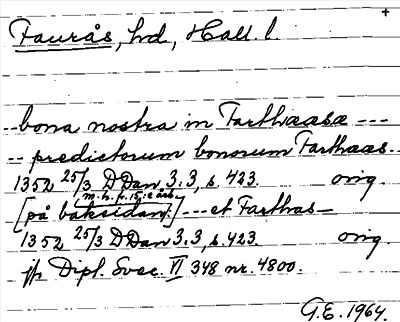 +
Faurås, hd, Hall. l
--bona nostra in Farthaasæ ---
-- predictorum bonorum Farthaas--
1352 25/3 D Dan 3.3, s. 423. orig.
m. h. fr. 15:e årh.
[på baksidan:] --- et Farthas —
1352 25/3 D Dan 3.3, s. 423. orig.
jfr Dipl. Svec. VI 348 nr. 4800.
G.E. 1964.